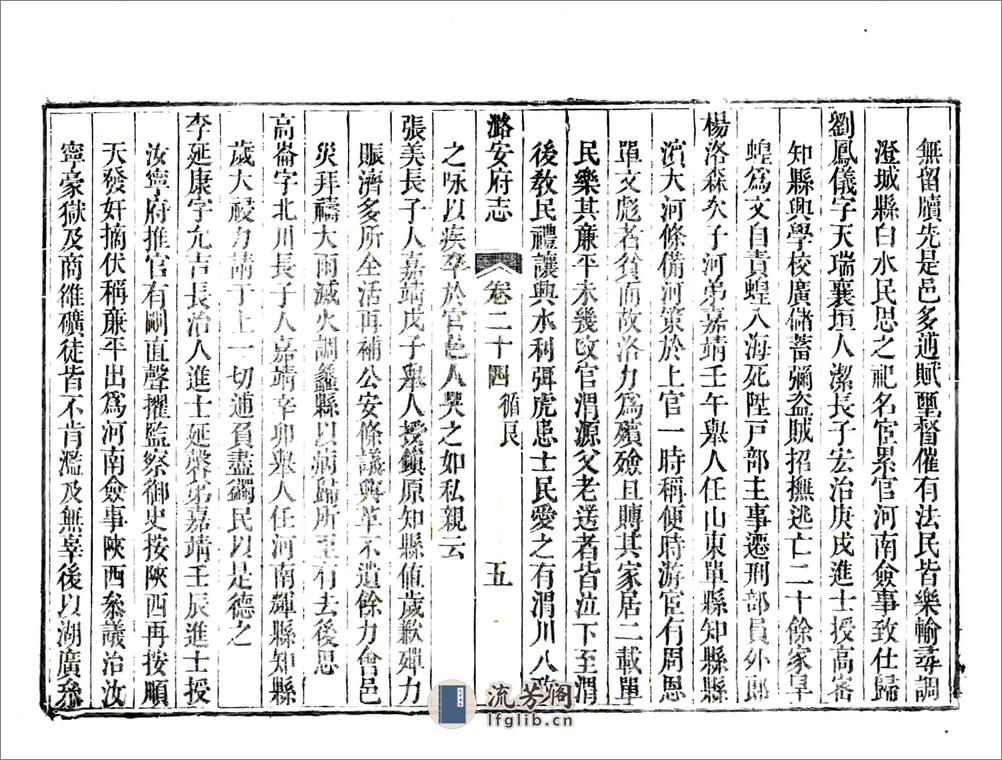 無留牘先是邑多逋賦璽督催有法民皆樂輸尋調
澄城縣白水民思之祀名宦累官河南僉事致仕歸
劉鳳儀字天瑞襄垣人潔長子宏治庚戌進士授高密
知縣興學校廣儲蓄彌盜賊招撫逃亡二十餘家旱
蝗爲文自責蝗入海死陞戸部主事遷刑部員外郎
楊洛森次子河弟嘉靖壬午舉人任山東單縣知縣縣
濱大河條備河策於上官一時稱便時游宦有周恩
單文彪者貧而故洛力爲殯殮且賻其家居二載單
民樂其廉平未幾改官渭源父老送者皆泣下至渭
後敎民禮讓興水利弭虎患士民愛之有渭川八政
潞安府志 卷二十四 循良 五
之咏以疾卒於官邑人哭之如私親云
張美長子人嘉靖戊子舉人授鎮原知縣值歲歉殫力
賑濟多所全活再補公安條議興革不遺餘力會邑
災拜禱大雨滅火調蠡縣以病歸所至有去後思
高崙字北川長子人嘉靖辛卯舉人任河南輝縣知縣
歲大祲力請于上一切逋負盡蠲民以是德之
李延康字允吉長治人進士延馨弟嘉靖壬辰進士授
汝寧府推官有剛直聲擢監察御史按陝西再按順
天發奸摘伏稱廉平出爲河南僉事陝西叅議治汝
寧豪獄及商雒礦徒皆不肯濫及無辜後以湖廣叅
流芳阁
lfglib.cn